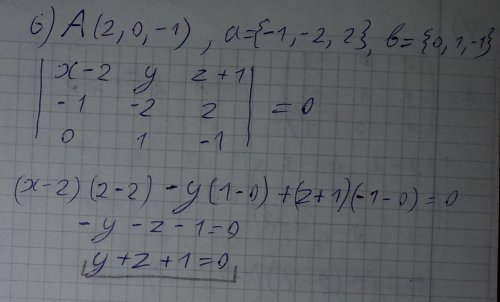 6) A(2, 0, -1), a={-1, -2, 2}, в={0, 1, -1}
| x-2 y z+1 |
| -1 -2 2 | = 0
| 0 1 -1 |
(x-2)(2-2) - y(1-0) + (z+1)(-1-0) = 0
-y - z - 1 = 0
y + z + 1 = 0